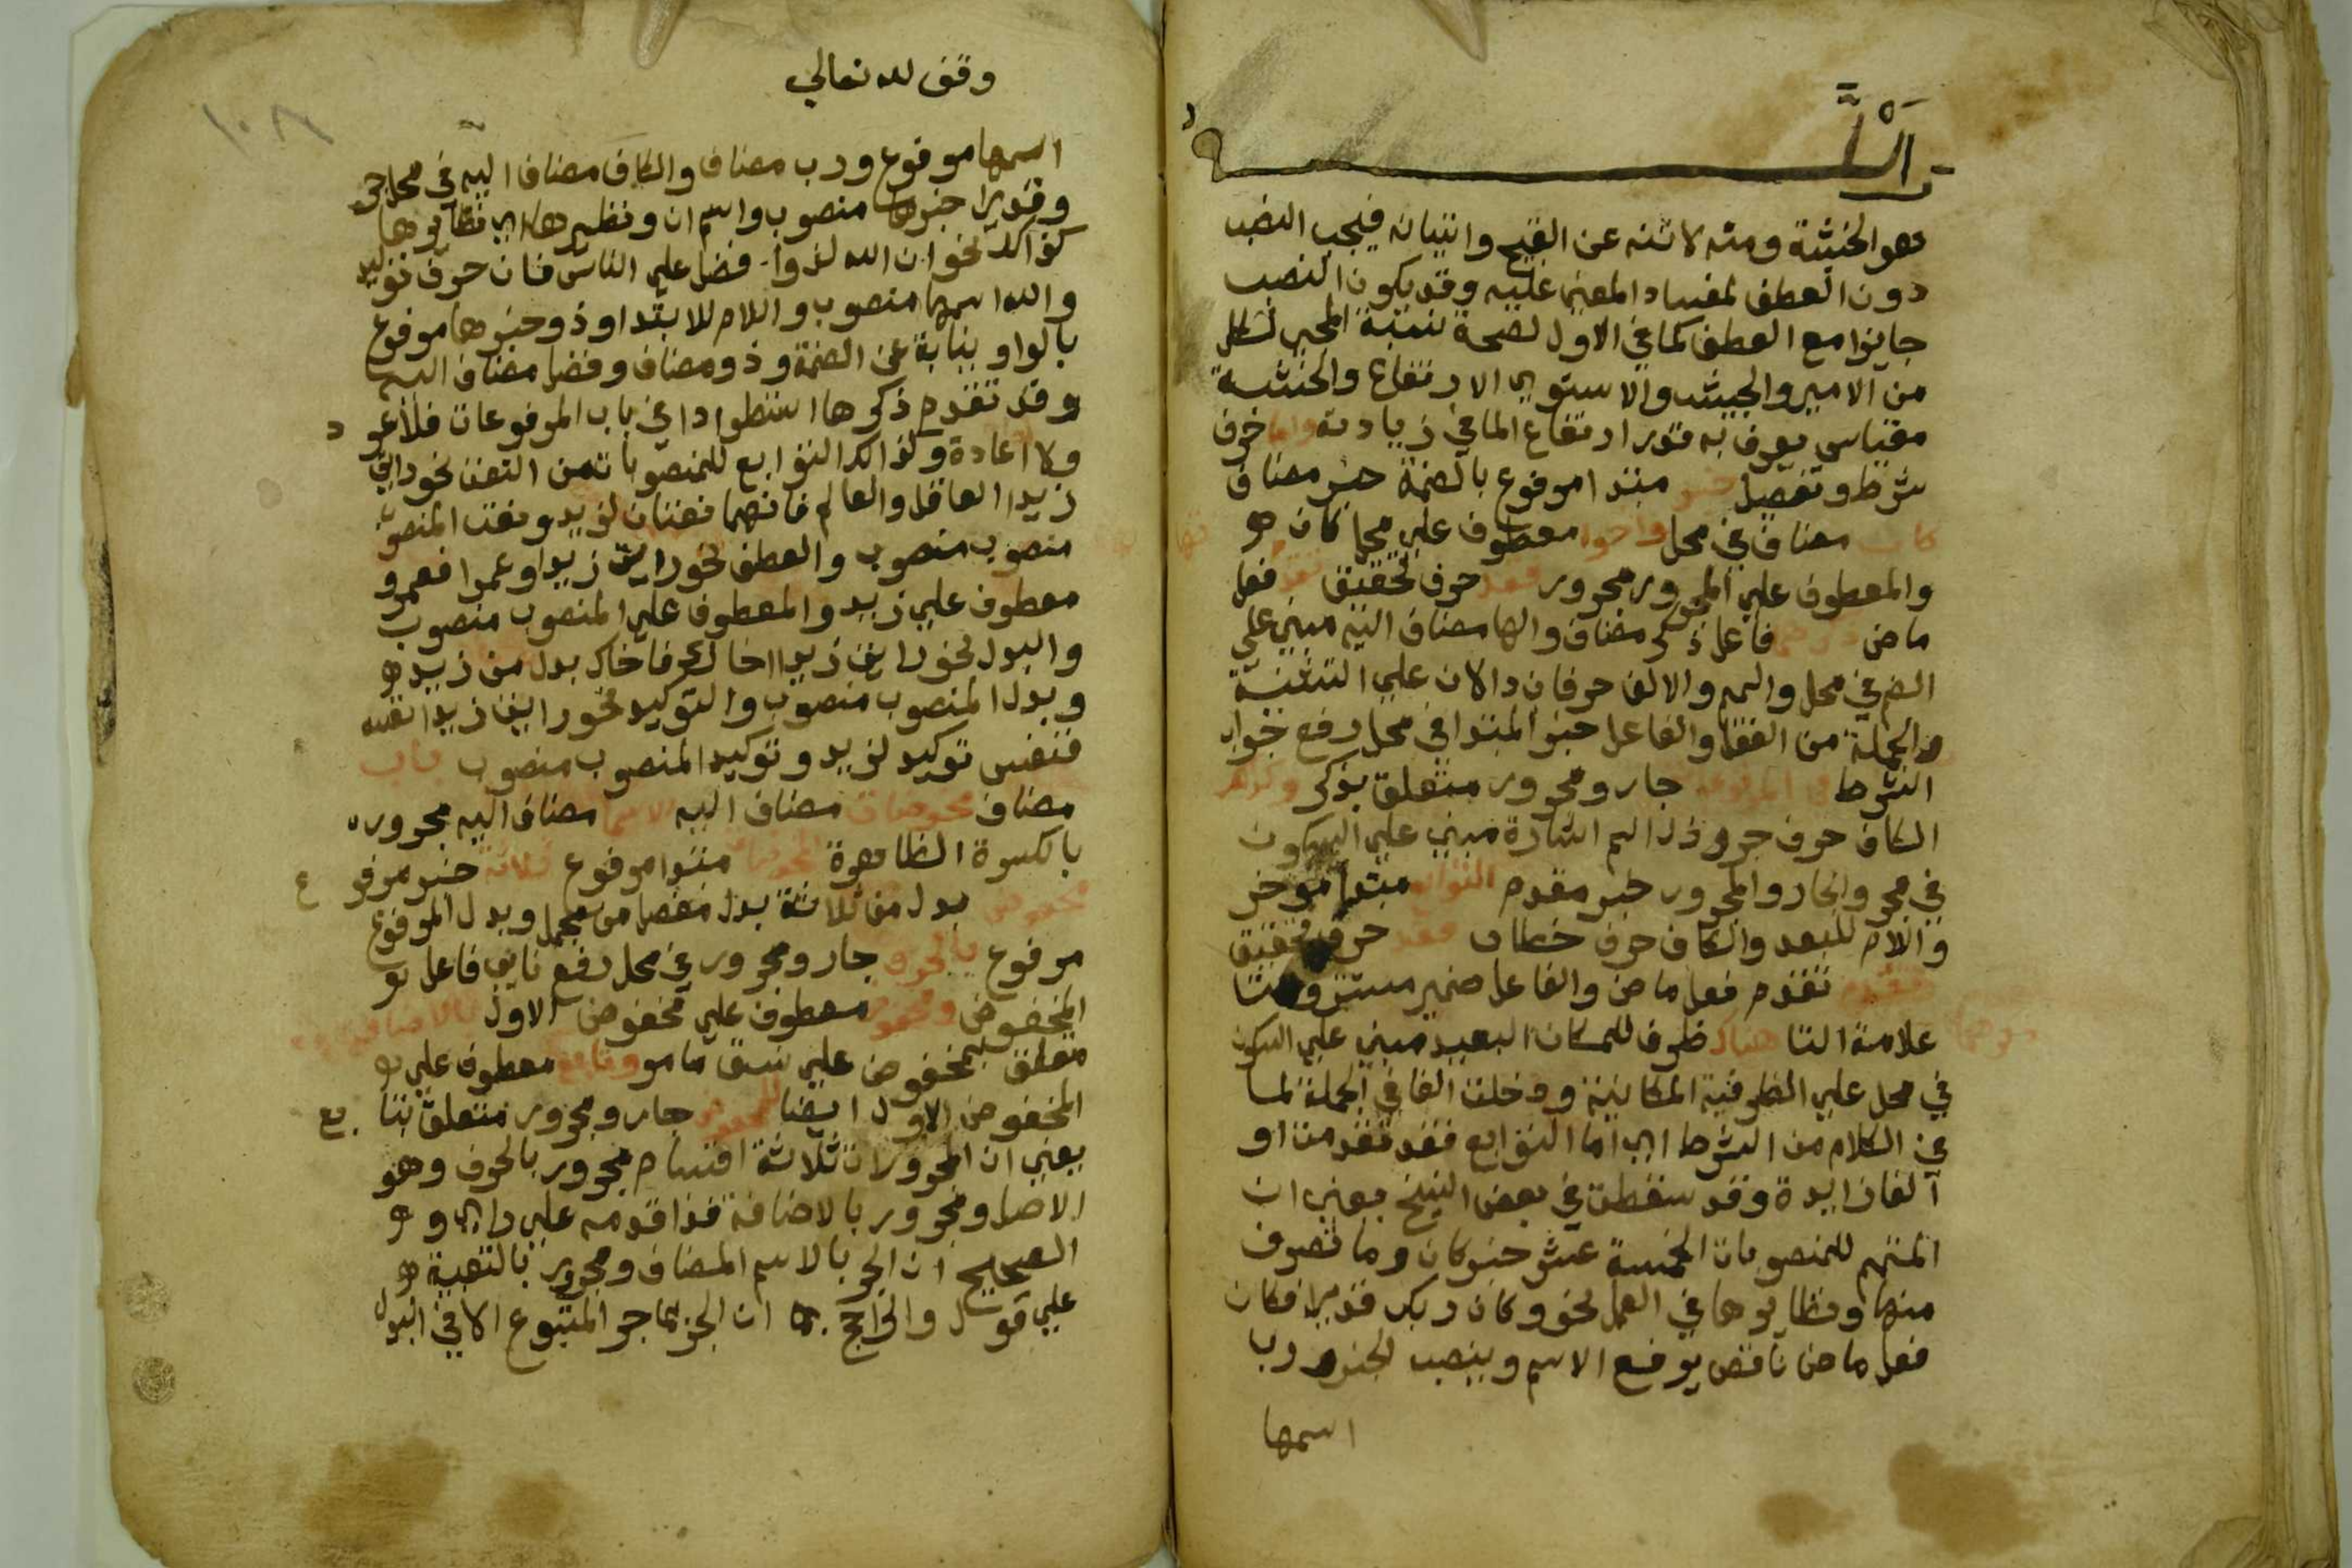 الله
وهو الخشبة ومثله لا تنه عن القبيح واتيانه فيجب النصب
دون العطف لفساد المعني عليه وقد يكون النصب
جايزا مع العطف كما في الاول لصحة نسبة المجي لكل
من الامير والجيش والاستوي الارتفاع والخشبة
مقياس يعرف به قدر ارتفاع الما في زيادته واما حرف
شرط وتفصيل خبر مبتدا مرفوع بالضمة خبر مضاف
كان مضاف في محل واخوا معطوف علي محل كان
والمعطوف علي المجرور مجرور فقد حرف تحقيق تقد فعل
ماض ذكرهما فاعل ذكر مضاف والها مضاف اليه مبني علي
الضم في محل والميم والالف حرفان دالان علي التثنية
والجملة من الفعل والفاعل خبر المبتدا في محل رفع جواب
الشرط في المرفوعات جار ومجرور متعلق بذكر وكذلك
الكاف حرف جر وذا اسم اشارة مبني علي السكون
في مجر والجار والمجرور خبر مقدم التوابع مبتدا موخر
واللام للبعد والكاف حرف خطاب فقد حرف تحقيق
تقدم فعل ماض والفاعل ضمير مستتر والتا
علامة التا هناك ظرف للمكان البعيد مبني علي السكون
في محل علي الظرفية المكانية ودخلت الفا في الجملة لما
في الكلام من الشرط اي اما التوابع فقد تقدمت او
الفا زايدة وقد سقطت في بعض النسخ يعني ان
المتمم للمنصوبات الخمسة عشر خبر كان وما تصرف
منها ونظايرها في العمل نحو وكان ربك قديرا فكان
فعل ماض ناقص يرفع الاسم وينصب الخبر ورب
اسمها
وقف لله تعالي
١٠٨
اسمها مرفوع ورب مضاف والكاف مضاف اليه في محل جر
وقديرا خبرها منصوب واسم ان ونظيرها اي نظايرها
كذالك نحو ان الله لذوا فضل علي الناس فان حرف توكيد
والله اسمها منصوب واللام للابتدا وذو خبرها مرفوع
بالواو نيابة عن الضمة وذو مضاف وفضل مضاف اليه
وقد تقدم ذكرها استطرادا في باب المرفوعات فلا عود
ولا اعادة وكذالك التوابع للمنصوبات من النعت نحو رايت
زيدا العاقل والعالم فانهما نعتان لزيد ونعت المنصوب
منصوب منصوب والعطف نحو رايت زيدا وعمرا فعمرو
معطوف علي زيد والمعطوف علي المنصوب منصوب
والبدل نحو رايت زيدا اخاك فاخاك بدل من زيد
وبدل المنصوب منصوب والتوكيد نحو رايت زيدا نفسه
فنفس توكيد لزيد وتوكيد المنصوب منصوب باب
مضاف مخفوضات مضاف اليه الاسما مضاف اليه مجرور
بالكسرة الظاهرة المخفوضات مبتدا مرفوع ثلاثة خبر مرفوع
مخفوض بدل من ثلاثة بدل مفصل من مجمل وبدل المرفوع
مرفوع بالحرف جار ومجرور في محل رفع نايب فاعل
المخفوض ومخفوض معطوف علي مخفوض الاول بالاضافة
متعلق بمخفوض علي نسق ما مر وتابع معطوف علي
المخفوض الاول ايضا للمخفوض جار ومجرور متعلق بتابع
يعني ان المجرورات ثلاثة اقسام مجرور بالحرف وهو
الاصل ومجرور بالاضافة فذا قدمه علي راي و
الصحيح ان الجر بالاسم المضاف ومجرور بالتبعية
علي قول والراجح ان الجر بما جر المتبوع الا في البدل